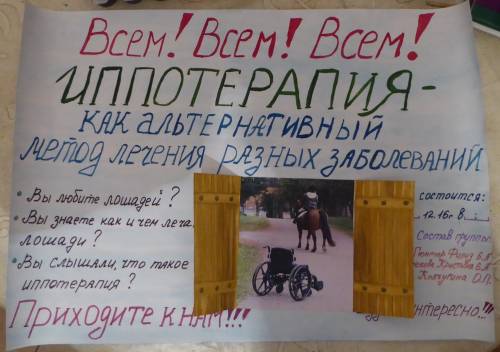 Всем! Всем! Всем!
ИППОТЕРАПИЯ-
КАК АЛЬТЕРНАТИВНЫЙ
МЕТОД ЛЕЧЕНИЯ РАЗНЫХ ЗАБОЛЕВАНИЙ
• Вы любите лошадей?
• Вы знаете как и чем леча
лошади?
• Вы слышали, что такое
иппотерапия?
Приходите к нам!!!
состоится:
12.16г в
Состав группы:
интересно!!!